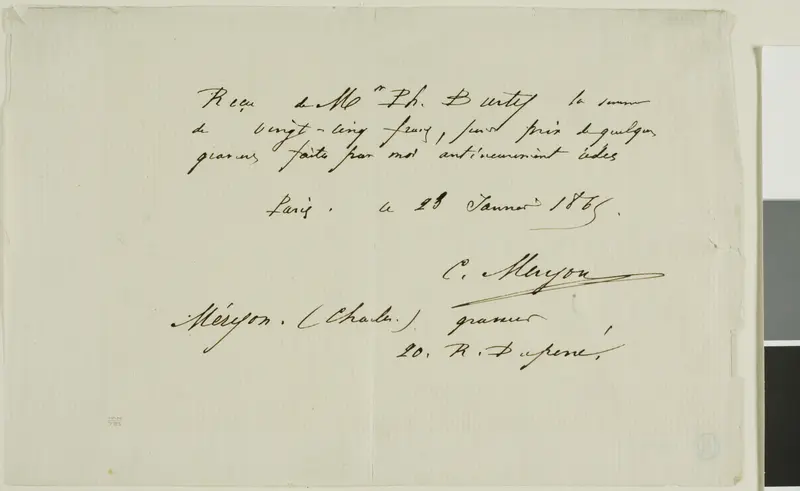 Reçu de Mr Ph. Burty la somme
de vingt-cinq francs, pour prix de quelques
gravures faites par moi antérieurement cédés
Paris. le 23 Janvier 1865.
C. Meryon
Méryon. (Charles.) graveur
20. R. Duperré.